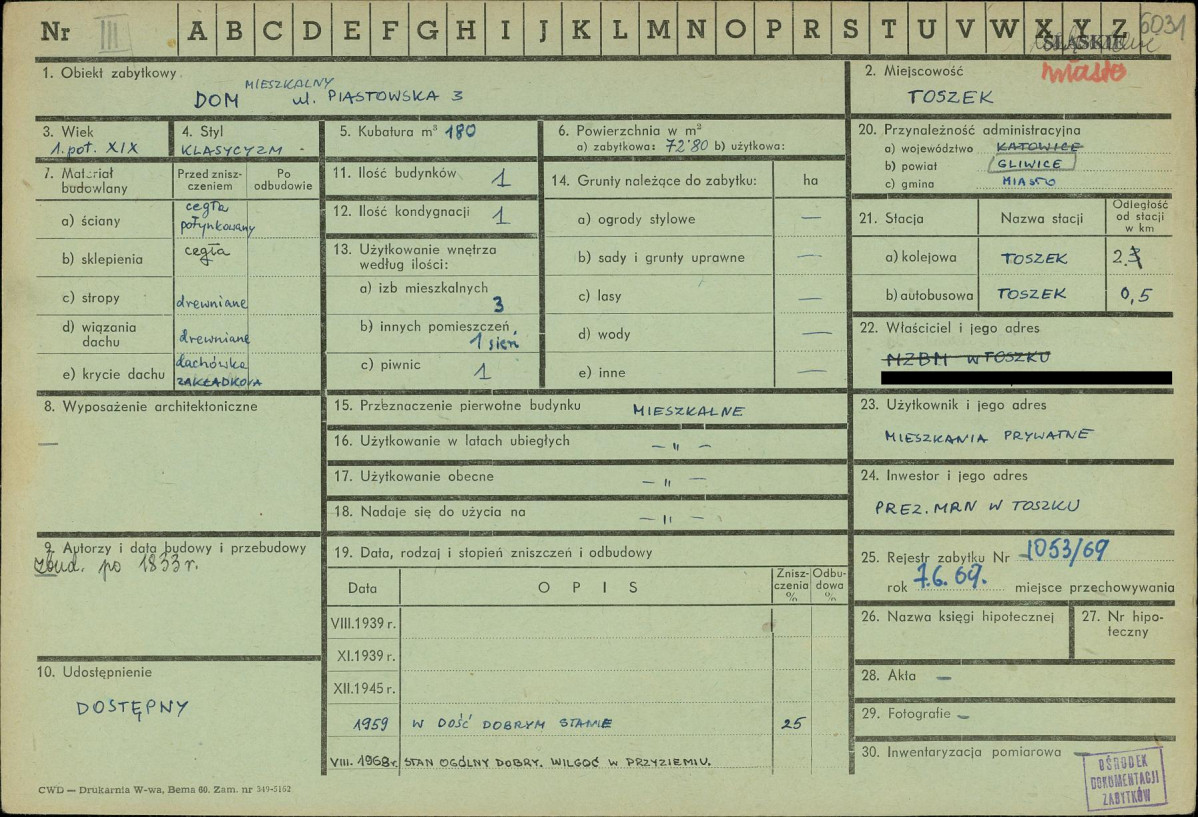 Nr III A B C D E F G H I J K L M N O P R S T U V W X Y Z 6031
ŚLĄSKIE
miasto
1. Obiekt zabytkowy
DOM MIESZKALNY ul. PIASTOWSKA 3
2. Miejscowość
TOSZEK
3. Wiek
1. poł. XIX
4. Styl
KLASYCYZM -
5. Kubatura m³ 180
6. Powierzchnia w m²
a) zabytkowa: 72'80 b) użytkowa:
7. Materiał budowlany
Przed znisz-
czeniem
Po
odbudowie
a) ściany cegła
potynkowany
b) sklepienia cegła
c) stropy drewniane
d) wiązania
dachu drewniane
e) krycie dachu dachówka
ZAKŁADKOVA
8. Wyposażenie architektoniczne
—
9. Autorzy i data budowy i przebudowy
zbud. po 1833 r.
10. Udostępnienie
DOSTĘPNY
11. Ilość budynków 1
12. Ilość kondygnacji 1
13. Użytkowanie wnętrza
według ilości:
a) izb mieszkalnych
3
b) innych pomieszczeń
1 sień
c) piwnic 1
14. Grunty należące do zabytku: ha
a) ogrody stylowe —
b) sady i grunty uprawne —
c) lasy —
d) wody —
e) inne —
15. Przeznaczenie pierwotne budynku MIESZKALNE
16. Użytkowanie w latach ubiegłych — " —
17. Użytkowanie obecne — " —
18. Nadaje się do użycia na — " —
19. Data, rodzaj i stopień zniszczeń i odbudowy
Data OPIS Znisz-
czenia
% Odbu-
dowa
%
VIII.1939 r.
XI.1939 r.
XII.1945 r.
1959 W DOŚĆ DOBRYM STANIE 25
VIII. 1968 r. STAN OGÓLNY DOBRY. WILGOĆ W PRZYZIEMIU.
20. Przynależność administracyjna
a) województwo KATOWICE
b) powiat GLIWICE
c) gmina MIASTO
21. Stacja Nazwa stacji Odległość
od stacji
w km
a) kolejowa TOSZEK 2.3
b) autobusowa TOSZEK 0,5
22. Właściciel i jego adres
MZBM w TOSZKU
23. Użytkownik i jego adres
MIESZKANIA PRYWATNE
24. Inwestor i jego adres
PREZ. MRN W TOSZKU
25. Rejestr zabytku Nr 1053/69
rok 7.6.69. miejsce przechowywania
26. Nazwa księgi hipotecznej
27. Nr hipo-
teczny
28. Akta —
29. Fotografie —
30. Inwentaryzacja pomiarowa —
OŚRODEK
DOKUMENTACJI
ZABYTKÓW
CWD — Drukarnia W-wa, Bema 60. Zam. nr 349-5162